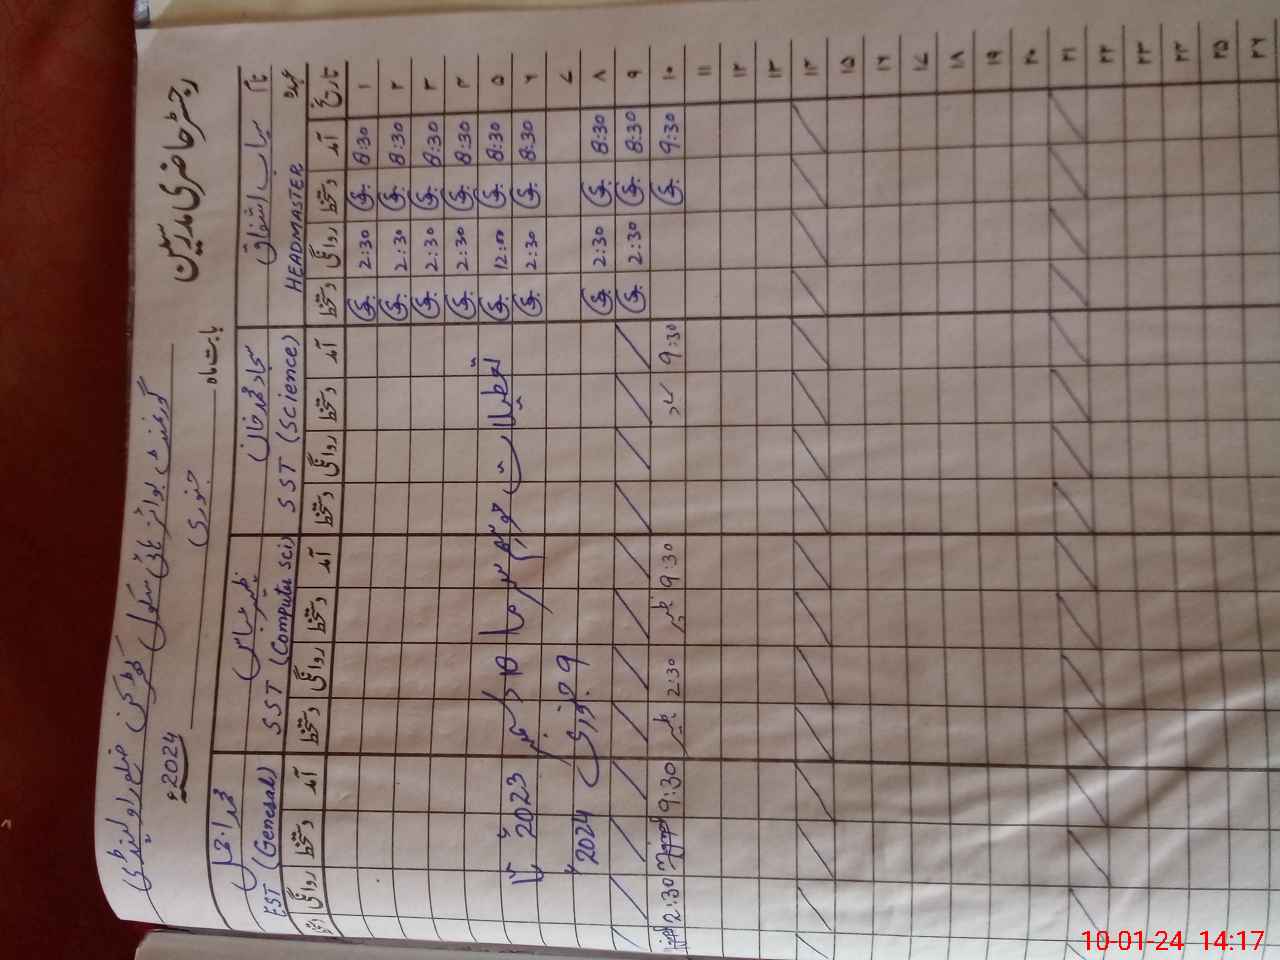 رجسٹر حاضری مدرسین
گورنمنٹ بوائز ہائی سکول ضلع راولپنڈی
بابت ماہ جنوری 2024ء
نام
عہدہ HEADMASTER SST (Science) SST (Computer Sci) EST (General)
تاریخ آمد دستخط روانگی دستخط آمد دستخط روانگی دستخط آمد دستخط روانگی دستخط آمد دستخط روانگی دستخط
۱ 8:30 2:30
۲ 8:30 2:30
۳ 8:30 2:30
۴ 8:30 2:30
۵ 8:30 12:00
۶ 8:30 2:30
تعطیلات موسم سرما 2023 تا
۷
9 جنوری 2024
۸ 8:30 2:30
۹ 8:30 2:30
۱۰ 9:30 9:30 9:30 2:30 9:30 2:30
۱۱
۱۲
۱۳
۱۴
۱۵
۱۶
۱۷
۱۸
۱۹
۲۰
۲۱
۲۲
۲۳
۲۴
۲۵
۲۶
10-01-24 14:17